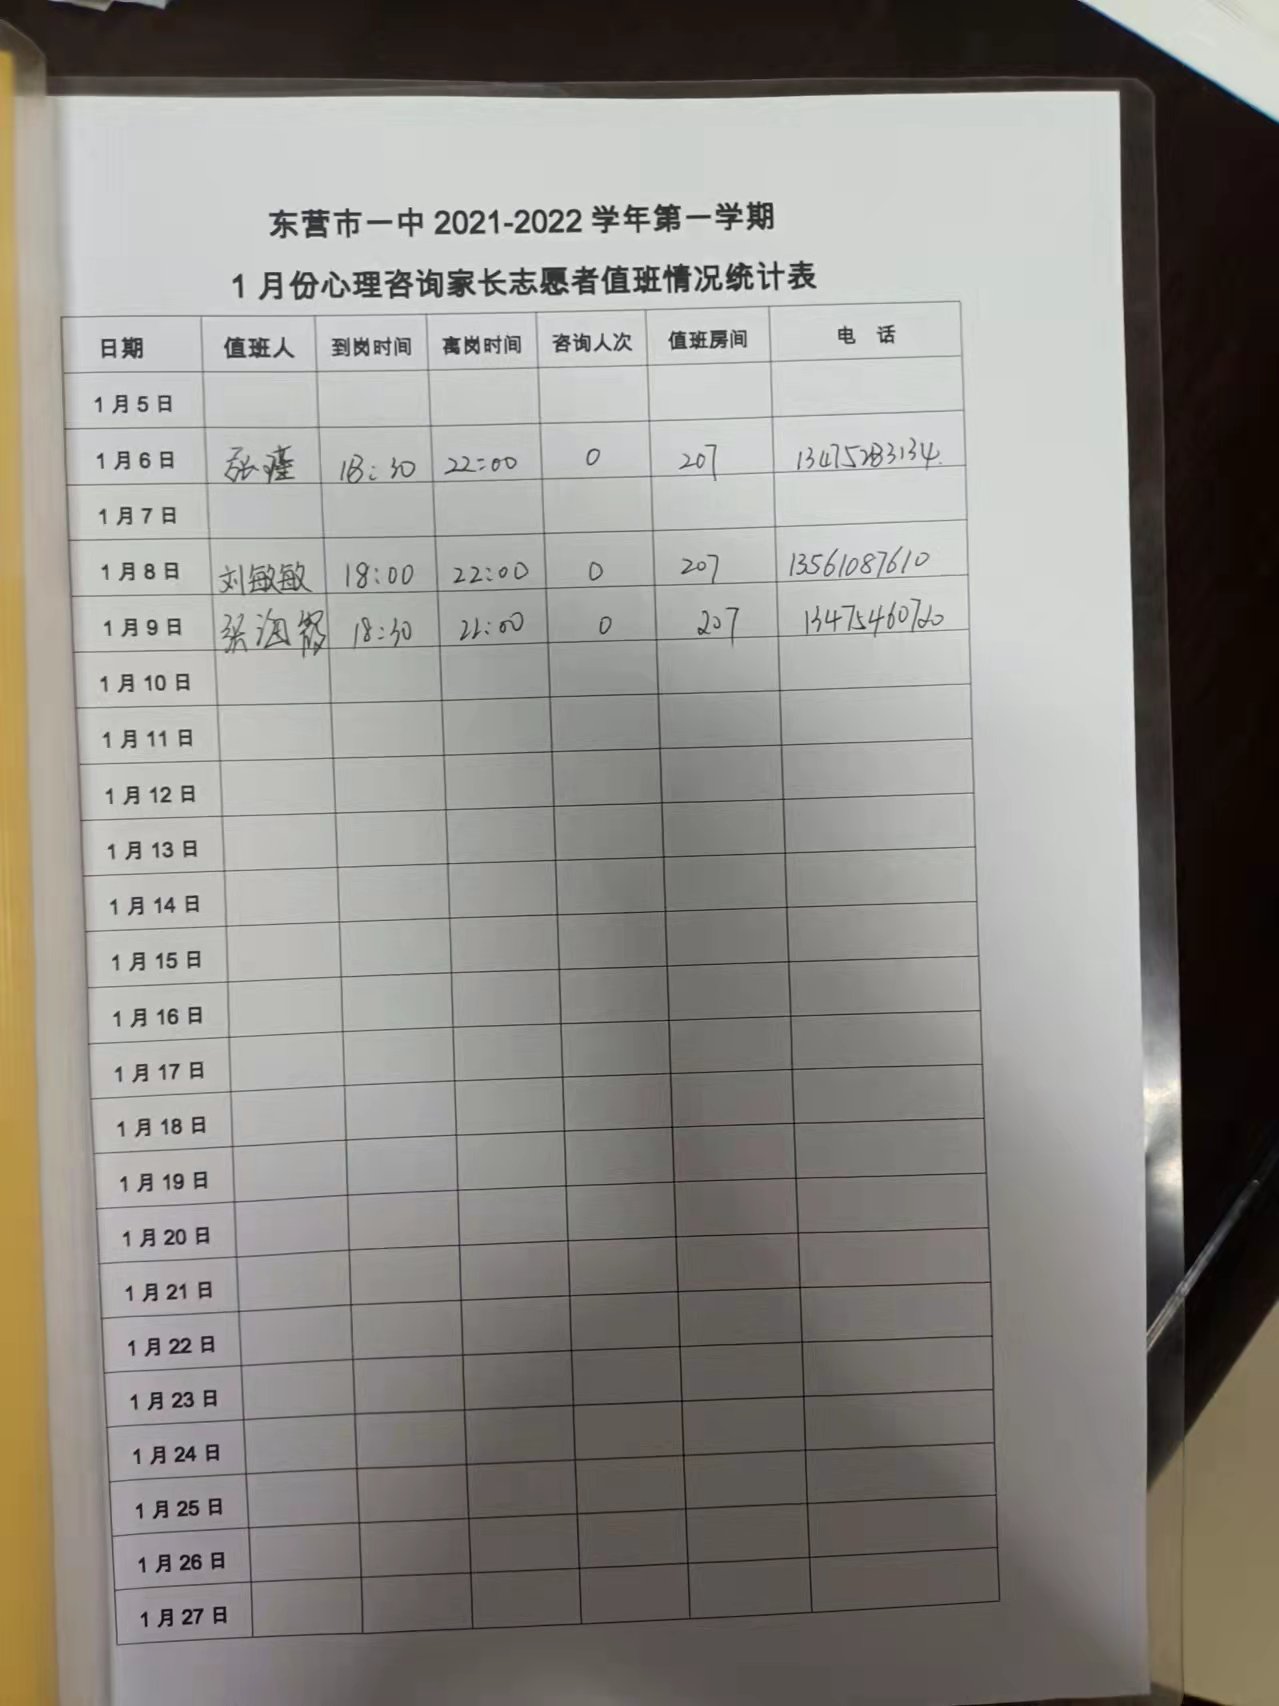 东营市一中 2021-2022 学年第一学期
1 月份心理咨询家长志愿者值班情况统计表
日期 值班人 到岗时间 离岗时间 咨询人次 值班房间 电 话
1 月 5 日
1 月 6 日 张 18:30 22:00 0 207 13475283134.
1 月 7 日
1 月 8 日 刘敏敏 18:00 22:00 0 207 13561087610
1 月 9 日 张海霞 18:30 22:00 0 207
1 月 10 日
1 月 11 日
1 月 12 日
1 月 13 日
1 月 14 日
1 月 15 日
1 月 16 日
1 月 17 日
1 月 18 日
1 月 19 日
1 月 20 日
1 月 21 日
1 月 22 日
1 月 23 日
1 月 24 日
1 月 25 日
1 月 26 日
1 月 27 日